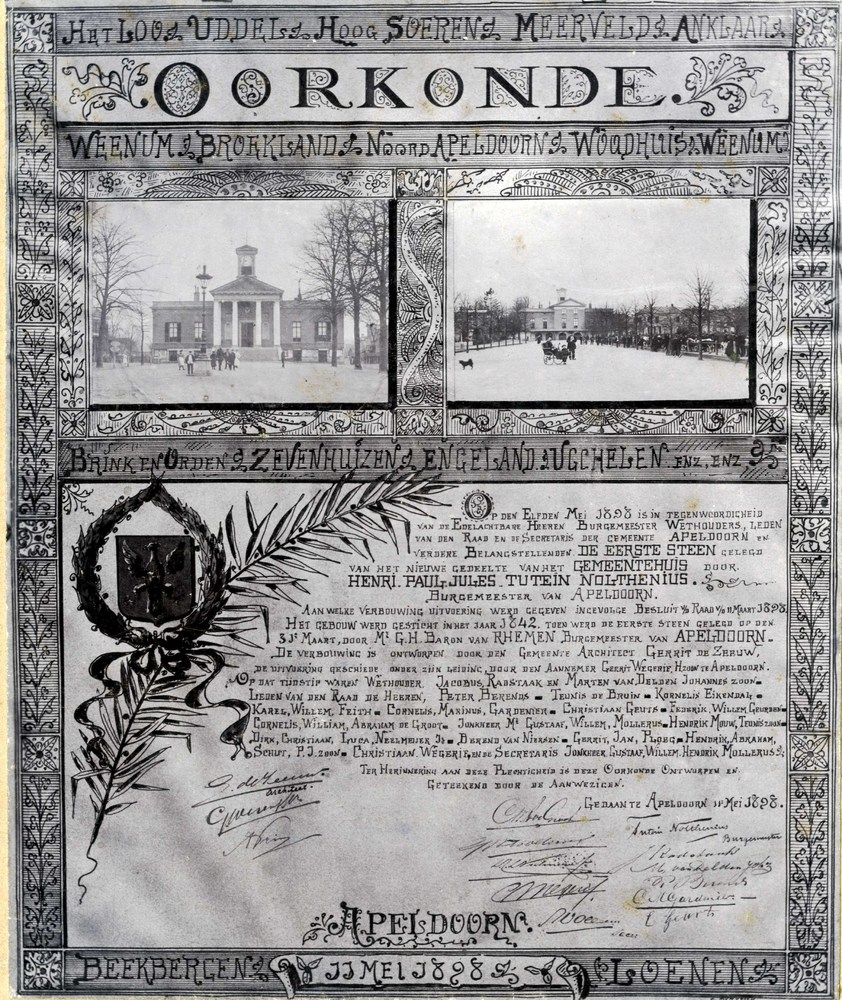 Het Loo Uddel Hoog Soeren Meerveld Anklaar
OORKONDE.
Weenum Broekland Noord Apeldoorn Woudhuis Weenum
Brink en Orden Zevenhuizen Engeland Ugchelen enz. enz.
Op den Elfden Mei 1898 is in tegenwoordigheid
van de Edelachtbare Heeren Burgemeester Wethouders, Leden
van den Raad en de Secretaris der Gemeente Apeldoorn en
verdere Belangstellenden De Eerste Steen gelegd
van het nieuwe gedeelte van het Gemeentehuis door.
Henri. Paul. Jules. Tutein Nolthenius.
Burgemeester van Apeldoorn.
Aan welke verbouwing uitvoering werd gegeven ingevolge Besluit v/d Raad v/d 11 Maart 1898.
Het gebouw werd gesticht in het jaar 1842. toen werd de eerste steen gelegd op den
31st Maart, door Mr G.H. Baron van Rhemen Burgemeester van Apeldoorn.
De verbouwing is ontworpen door den Gemeente Architect Gerrit de Zeeuw,
de uitvoering geschiede onder zijn leiding, door den Aannemer Gerrit Wegerif, Hzoon te Apeldoorn.
Op dat tijdstip waren Wethouder Jacobus Radstaak en Marten van Delden Johannes zoon
Lieden van den Raad de Heeren, Peter Berends = Teunis de Bruin = Kornelis Eikendal =
Karel, Willem, Feith = Cornelis, Marinus, Gardenier = Christiaan Geuts = Frederik, Willem
Cornelis, William, Abraham de Groot = Jonkheer Mr Gustaaf, Willem, Mollerus = Hendrik Mouw, Teunis zoon =
Dirk, Christiaan, Luca, Neelmeijer Jr = Berend van Niersen = Gerrit, Jan, Ploeg = Hendrik, Abraham,
Schut, P.J. zoon = Christiaan Wegerif, en de Secretaris Jonkheer Gustaaf, Willem, Hendrik Mollerus
Ter Herinnering aan deze Plechtigheid is deze Oorkonde ontworpen en
geteekend door de Aanwezigen.
Gedaan te Apeldoorn 11 Mei 1898.
G. de Zeeuw
architect.
Tutein Nolthenius
Burgemeester
Radstaak
M. van Delden
P. Berends
C M Gardenier
Apeldoorn.
Beekbergen 11 Mei 1898 Loenen